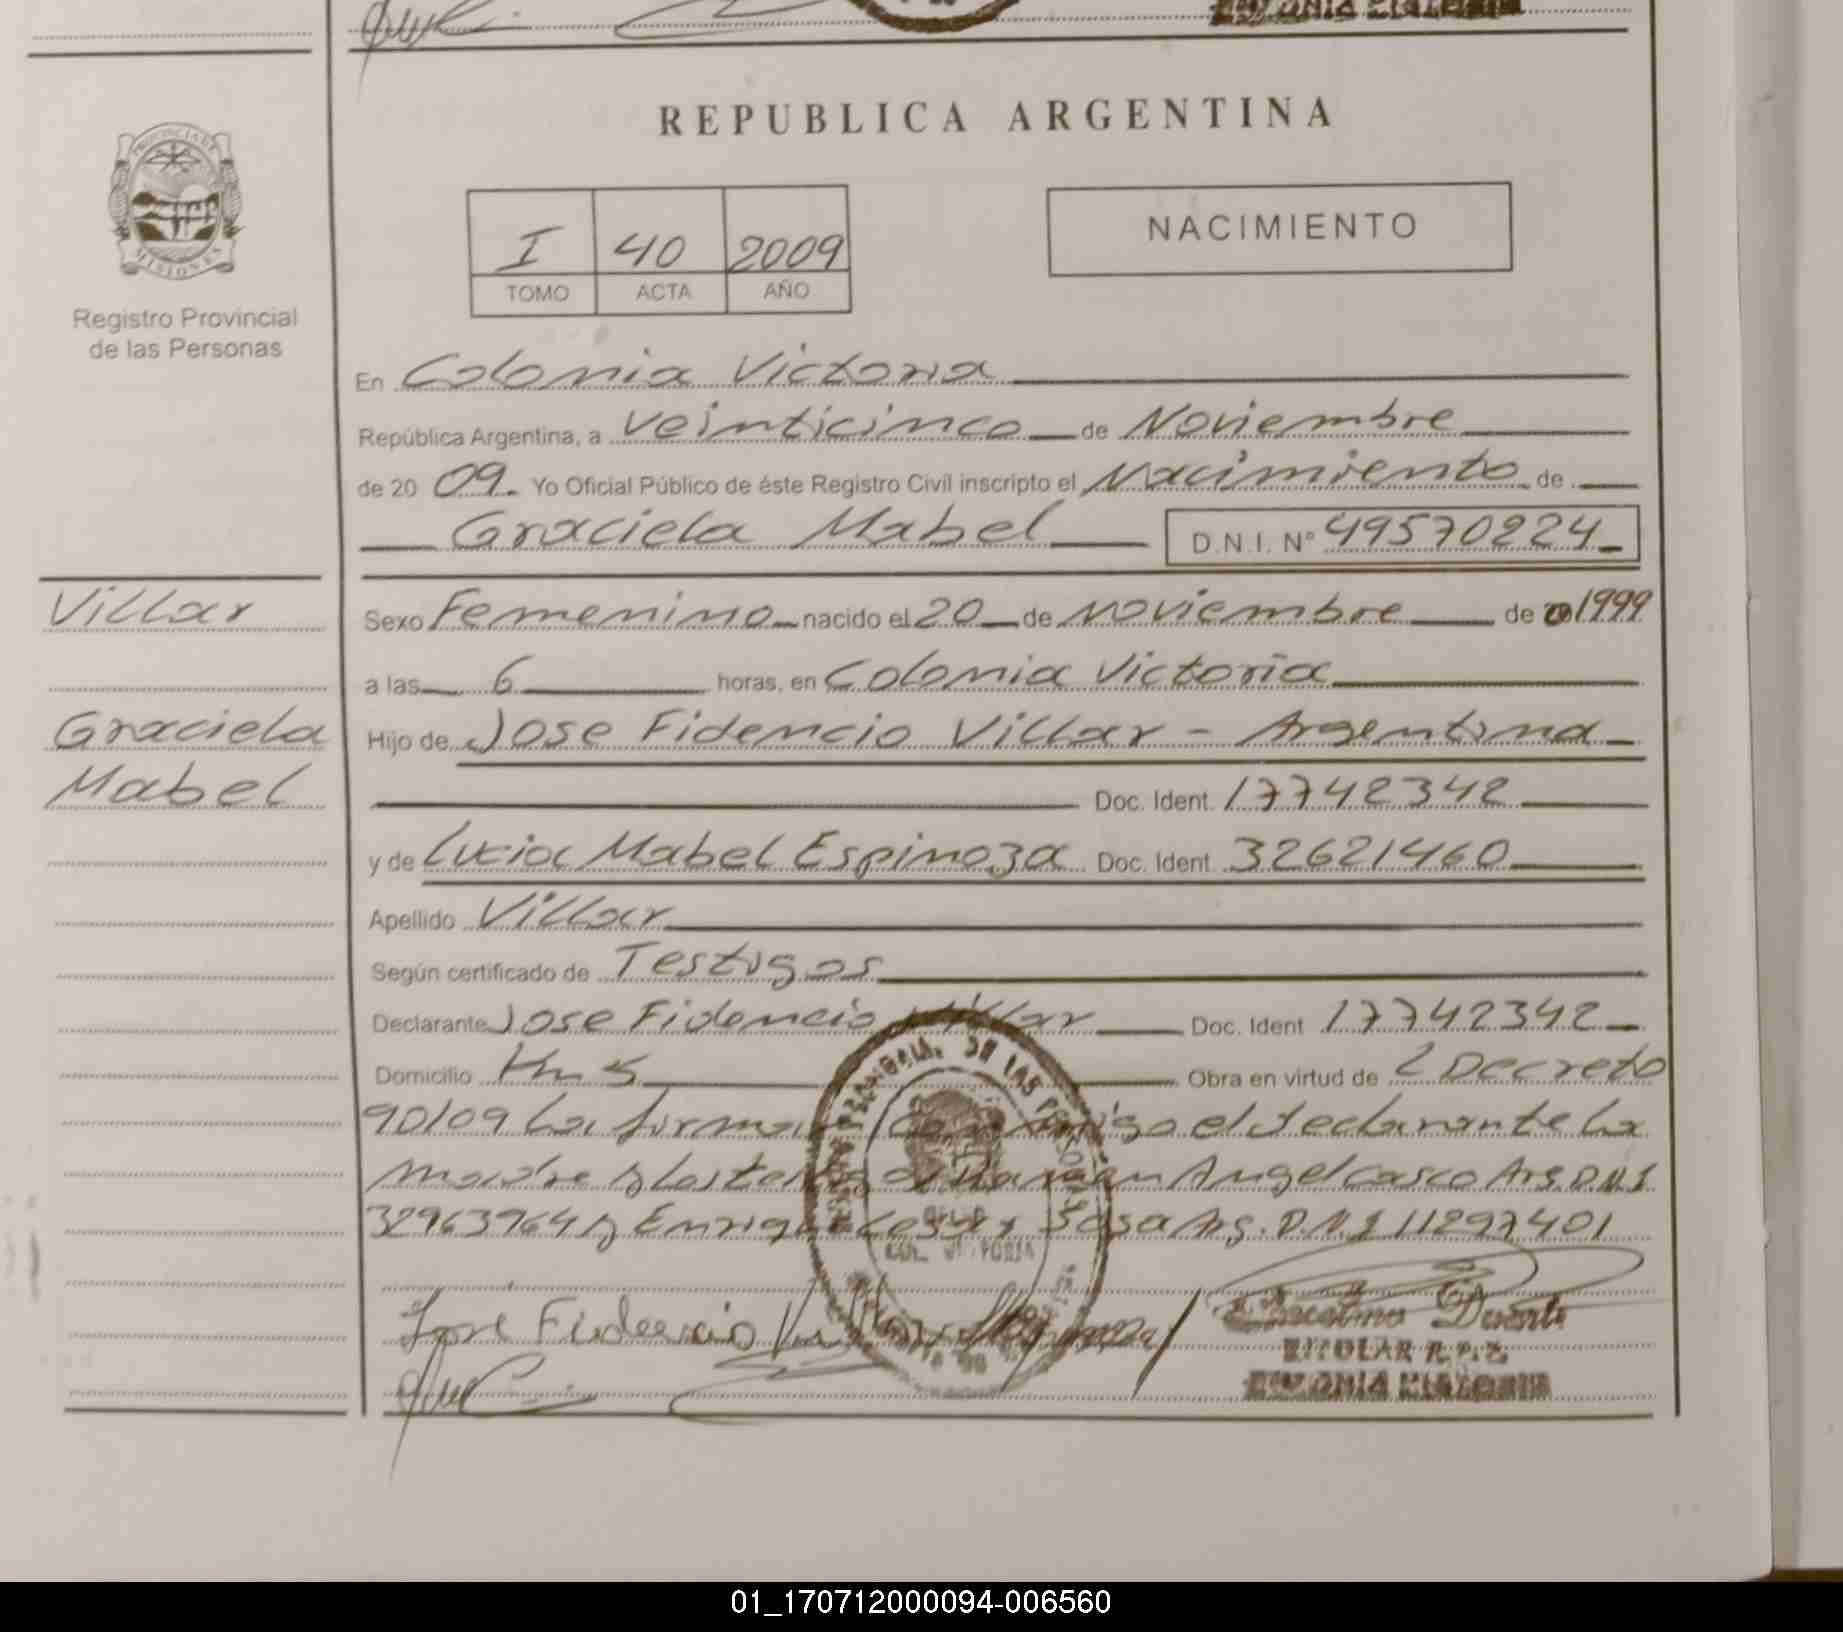 REPUBLICA ARGENTINA
PROVINCIA DE
MISIONES
Registro Provincial
de las Personas
I 40 2009
TOMO ACTA AÑO
NACIMIENTO
En Colonia Victoria
República Argentina, a veinticinco de Noviembre
de 20 09. Yo Oficial Público de éste Registro Civil inscripto el Nacimiento de
Graciela Mabel D.N.I. Nº 49570224
Villar
Sexo Femenino nacido el 20 de noviembre de 1999
a las 6 horas, en Colonia Victoria
Graciela
Mabel
Hijo de Jose Fidencio Villar - Argentina
Doc. Ident. 17742342
y de Lucia Mabel Espinoza Doc. Ident. 32621460
Apellido Villar
Según certificado de Testigos
Declarante Jose Fidencio Villar Doc. Ident 17742342
Domicilio Km 5 Obra en virtud de Decreto
90/09 La firman conmigo el declarante la
madre y los testigos Ramon Angel Casco Arg. D.N.I
32963964 y Enrique Cesar Sosa Arg. D.N.I 11297401
Jose Fidencio Villar
TITULAR R.P.
COLONIA VICTORIA
01_170712000094-006560